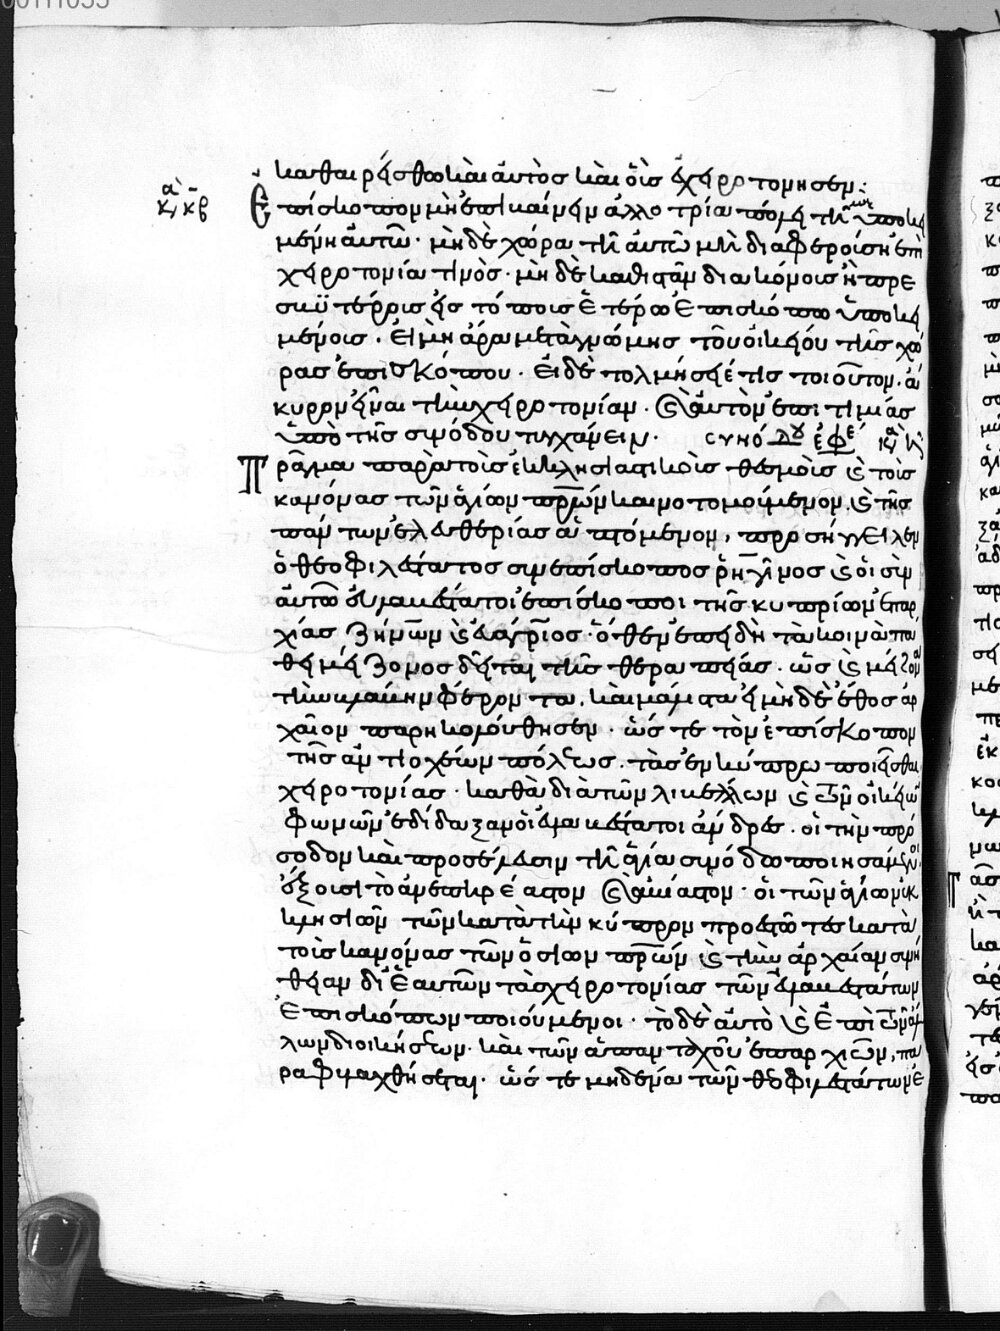 καθαιρείσθω καὶ αὐτὸς καὶ οὓς ἐχειροτόνησεν:
κ κβ Ἐπίσκοπον μὴ ἐπιβαίνειν ἀλλοτρίᾳ πόλει τῆ μὴ ὑποκει
μένη αὐτῶ· μηδὲ χώρα τῆ αὐτῶ μὴ διαφερούση ἐπὶ
χειροτονίαν τινός· μηδὲ καθιστᾶν διακόνους ἢ πρε
σβυτέρους εἰς τόπους ἑτέρω ἐπισκόπω ὑποκει
μένοις. εἰ μὴ ἄρα μετὰ γνώμης τοῦ οἰκείου τῆς χώ
ρας ἐπισκόπου. εἰ δὲ τολμήσειέ τις τοιοῦτον, ἄ
κυρον εἶναι τὴν χειροτονίαν. καὶ αὐτὸν ἐπιτιμίας
ὑπὸ τῆς συνόδου τυγχάνειν. συνό δου ἐφε κ
Πρᾶγμα παρὰ τοὺς ἐκκλησιαστικοὺς θεσμοὺς ϗ τοὺς
κανόνας τῶν ἁγίων πρων καινοτομούμενον, ϗ τῆς
πάντων ἐλευθερίας ἁπτόμενον, προσήγγειλεν
ὁ θεοφιλέστατος συνεπίσκοπος ῥηγῖνος ϗ οἱ σὺν
αὐτῶ εὐλαβέστατοι ἐπίσκοποι τῆς κυπρίων ἐπαρ
χίας ζήνων ϗ εὐάγριος· ὅθεν ἐπειδὴ τὰ κοινὰ πά
θη μείζονος δεῖται τῆς θεραπείας. ὡς ϗ μείζονα
τὴν βλάβην φέροντα. καὶ μάλιστα εἰ μηδὲ ἔθος ἀρ
χαῖον παρηκολούθησεν. ὥστε τὸν ἐπίσκοπον
τῆς ἀντιοχέων πόλεως. τὰς ἐν κύπρω ποιεῖσθαι
χειροτονίας. καθὰ διὰ τῶν λιβέλλων ϗ τῶν οἰκείων
φωνῶν ἐδίδαξαν οἱ εὐλαβέστατοι ἄνδρες. οἱ τὴν πρό
σοδον καὶ προσέλευσιν τῆ ἁγία συνόδω ποιησάμενοι
ἕξουσι τὸ ἀνεπηρέαστον καὶ ἀβίαστον. οἱ τῶν ἁγίων ἐκ
κλησιῶν τῶν κατὰ τὴν κύπρον προεστῶτες κατὰ
τοὺς κανόνας τῶν ὁσίων πρων ϗ τὴν ἀρχαίαν συνή
θειαν δι' ἑαυτῶν τὰς χειροτονίας τῶν εὐλαβεστάτων
ἐπισκόπων ποιούμενοι. τὸ δὲ αὐτὸ ϗ ἐπὶ τῶν ἄλ
λων διοικήσεων. καὶ τῶν ἁπανταχοῦ ἐπαρχιῶν, πα
ραφυλαχθήσεται. ὥστε μηδένα τῶν θεοφιλεστάτων ἐ